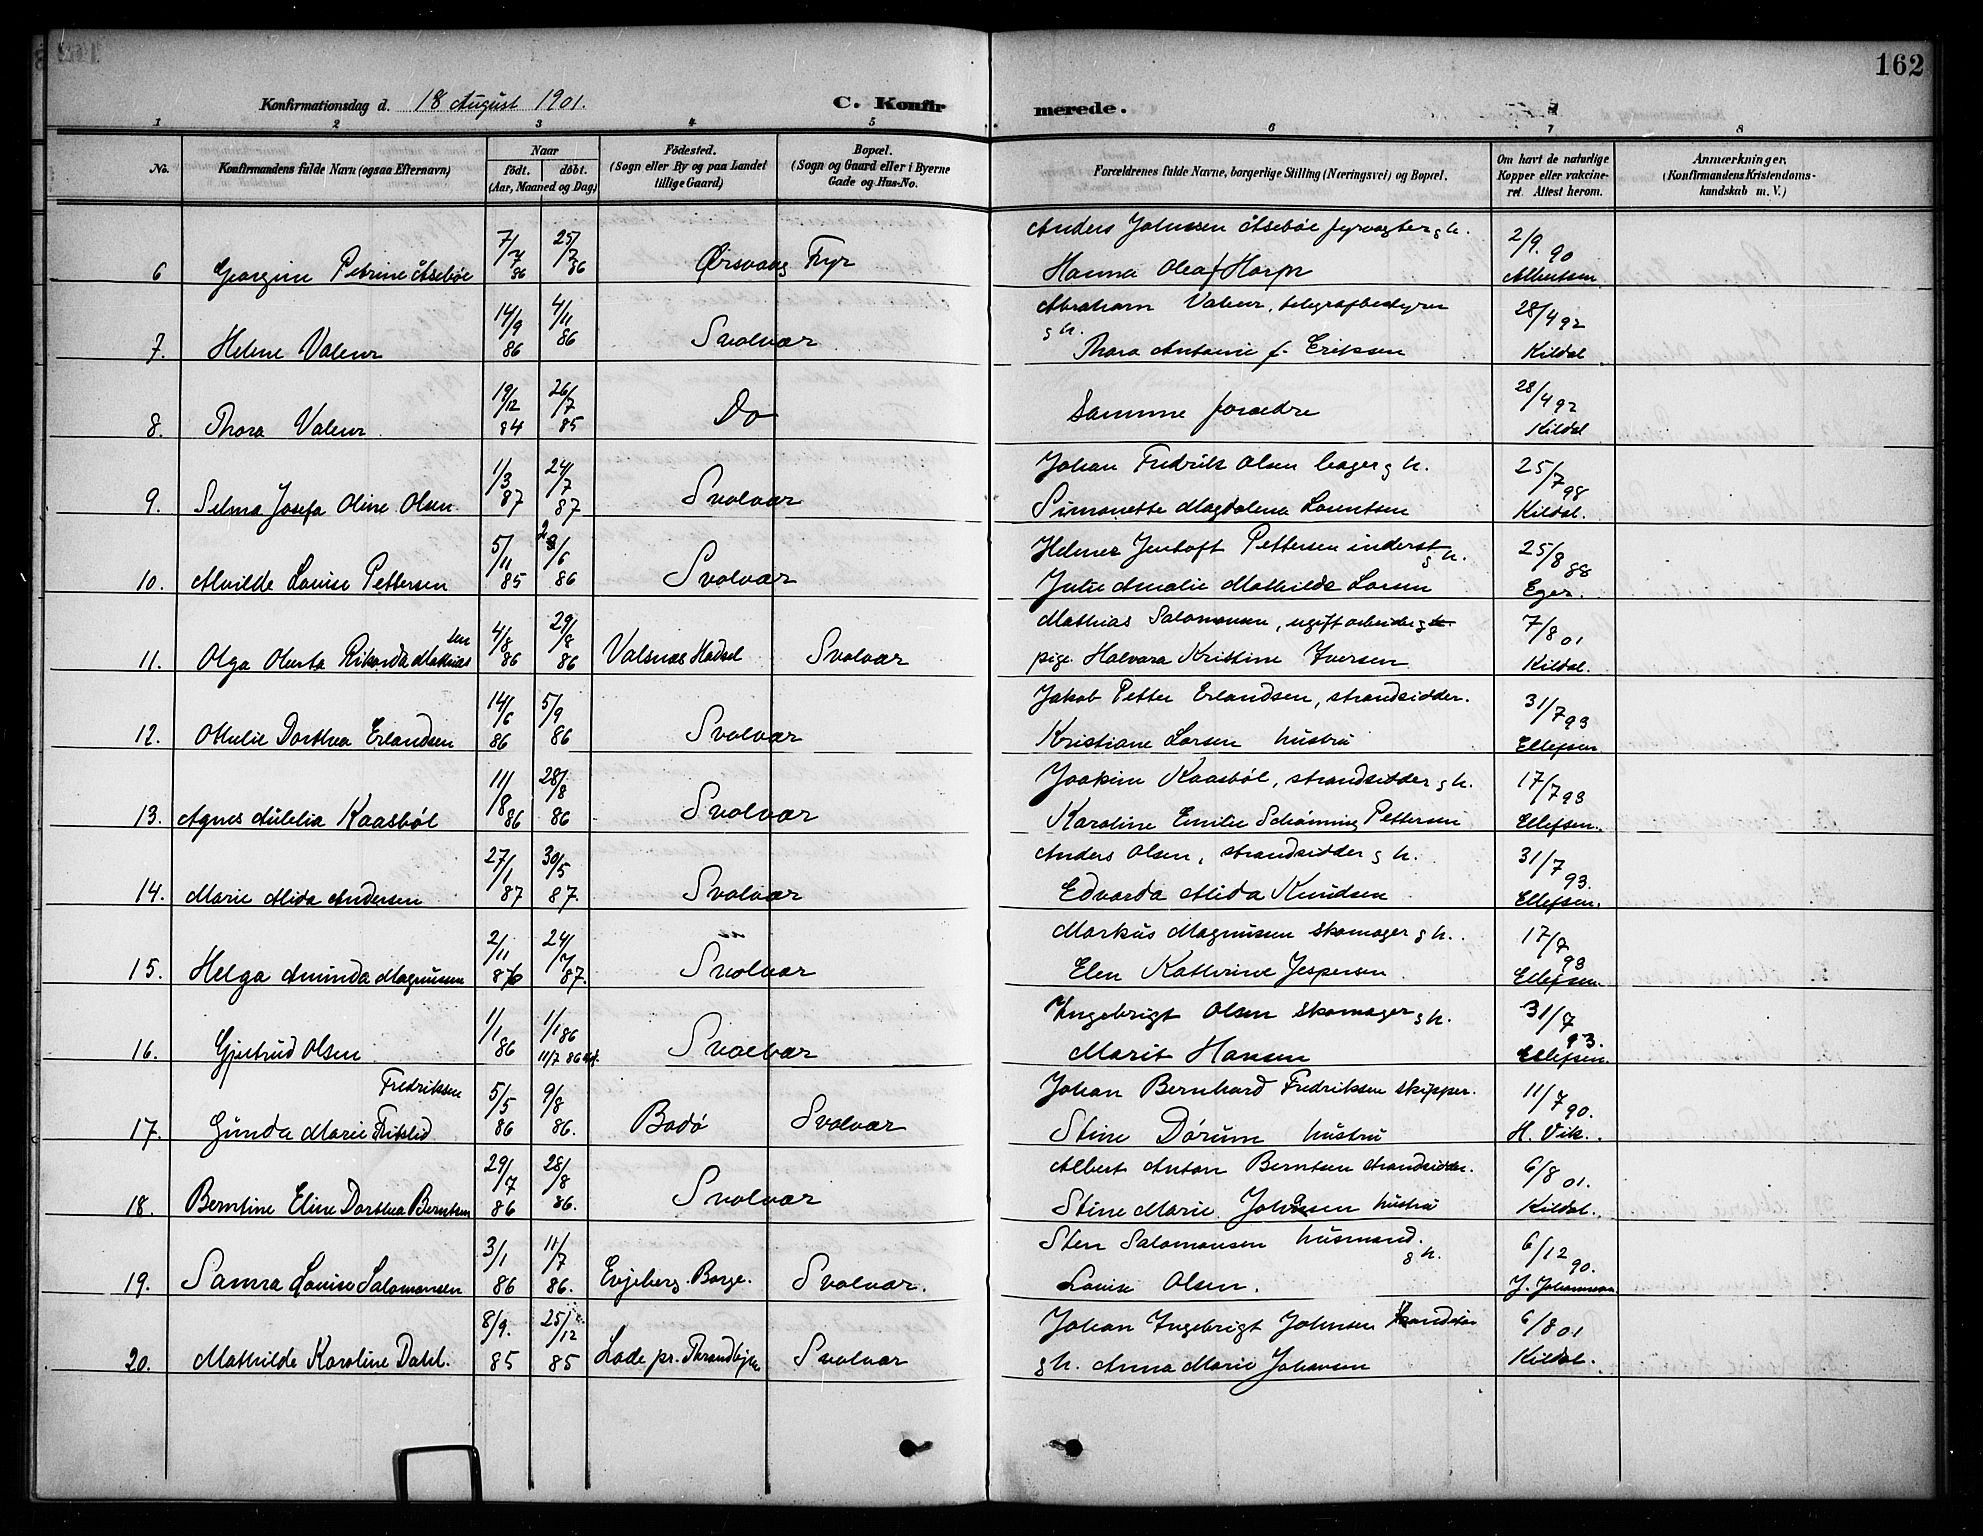 162
Konfirmationsdag d. 18 August 1901.
C. Konfirmerede.
1 2 3 4 5 6 7 8
No.
Konfirmandens fulde Navn (ogsaa Efternavn)
Naar
født. døbt.
(Aar, Maaned og Dag)
Fødested.
(Sogn eller By og paa Landet
tillige Gaard)
Bopæl.
(Sogn og Gaard eller i Byerne
Gade og Hus-No.
Forældrenes fulde Navne, borgerlige Stilling (Næringsvei) og Bopæl.
Om havt de naturlige
Kopper eller vakcine-
ret. Attest herom.
Anmærkninger.
(Konfirmandens Kristendoms-
kundskab m. V.)
6 Georgine Petrine Åsebøe 7/7 86 25/7 86 Ørsvaag Fyr Anders Johnssen Åsebøe fyrvogter g h. 2/9. 90
Hanna Olea f Harpr Albertsen
7. Helene Valeur 14/9 86 4/11 86 Svolvær Abraham Valeur, telegrafbestyrer 28/4 92
g h.
Thora Antonie f. Eriksen Kildal
8. Thora Valeur 19/12 84 26/7 85 Do Samme forældre 28/4 92
Kildal
9. Selma Josefa Oline Olsen 1/3 87 24/7 87 Svolvær Johan Fredrik Olsen bager g h. 25/7 98
Simonette Magdalena Lorentsen Kildal.
10. Alvilde Louise Pettersen 5/11 85 /6 86 Svolvær Helmer Jentoft Pettersen inderst g h. 25/8 88
Julie Amalie Mathilde Larsen Eger.
11. Olga Oluta Rikarda Mathiassen 4/8 86 29/8 86 Valsnæs Hadsel Svolvær Mathias Salomonsen, ugift arbeider g h. 7/8 01
pige. Halvara Kristine Iversen Kildal.
12. Othelie Dorthea Erlandsen 14/6 86 5/9 86 Svolvær Jakob Petter Erlandsen, strandsidder. 31/7 93
Kristiane Larsen hustru Ellefsen
13. Agnes Aulelia Kaasbøl 11/8 86 28/8 86 Svolvær Joakim Kaasbøl, strandsidder g h. 17/7 93
Karoline Emilie Schønning Pettersen Ellefsen.
14. Marie Alida Andersen 27/1 87 30/5 87. Svolvær Anders Olsen, strandsidder g h. 31/7 93.
Edvarda Alida Knudsen Ellefsen.
15. Helga Aminda Magnussen 2/11 86 24/7 87. Svolvær Markus Magnussen skomager g h. 17/7 93
Elen Kathrine Jespersen Ellefsen.
16. Gjertrud Olsen 1/1 86 1/1 86 Svolvær Ingebrigt Olsen skomager g h. 31/7 93.
11/7 86 Marit Hansen Ellefsen
17. Gunda Marie Fredriksen 5/5 86 9/8 86. Bodø Svolvær Johan Bernhard Fredriksen skipper. 11/7 90.
Stine Dørum hustru H. Vik.
18. Berntine Eline Dorthea Berntsen 29/7 86 28/8 86. Svolvær Albert Anton Berntsen strandsidder. 6/8 01.
Stine Marie Johnsen hustru Kildal.
19. Sanna Louise Salomonsen 3/1 86 11/7 86. Evjeberg. Borge. Svolvær. Sten Salomonsen husmand. g h. 6/12 90.
Louise Olsen. J. Johannesen
20. Mathilde Karoline Dahl. 8/9. 85 25/12 85 Lade pr. Trondhjem Svolvær Johan Ingebrigt Johnsen 6/8 01
g h. Anna Marie Johansen Kildal.